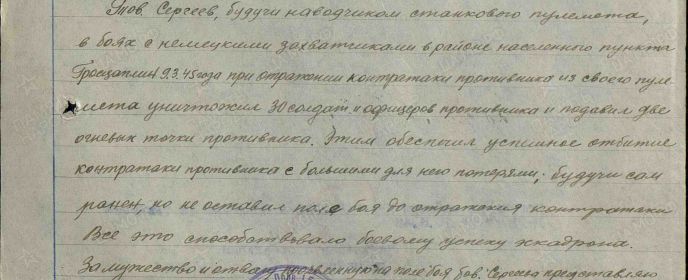 Тов. Сергеев, будучи наводчиком станкового пулемета,
в боях с немецкими захватчиками в районе населенного пункта
9.3.45 года при отражении контратаки противника из своего пуле-
мета уничтожил 30 солдат и офицеров противника и подавил две
огневых точки противника. Этим обеспечил успешное отбитие
контратаки противника с большими для него потерями, будучи сам
ранен, но не оставил поле боя до отражения контратаки
Все это способствовало боевому успеху эскадрона.
За мужество и отвагу на поле боя тов. Сергеева представляю